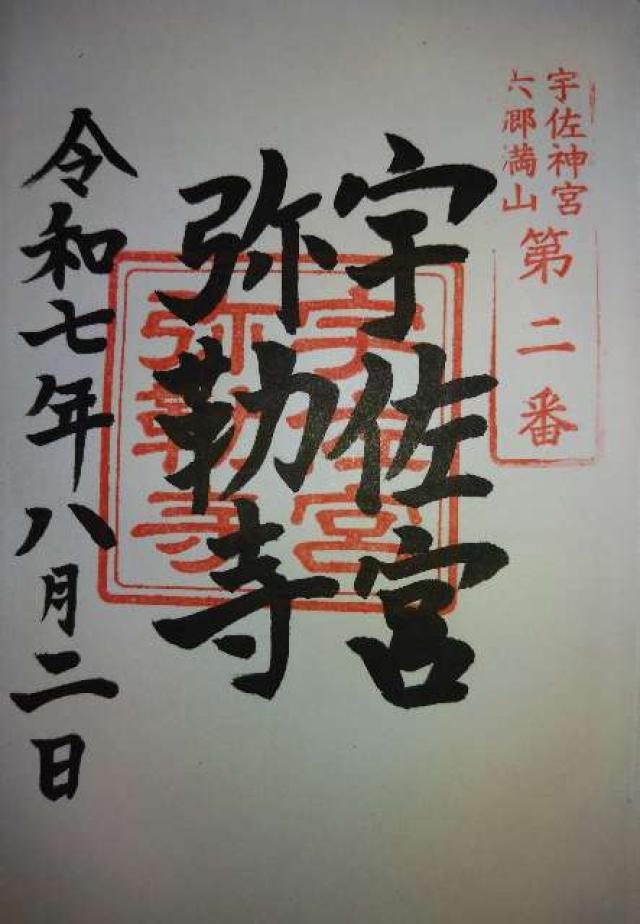 宇佐神宮
六郷満山
第二番
宇佐宮
弥勒寺
宇佐宮
弥勒寺
令和七年八月二日